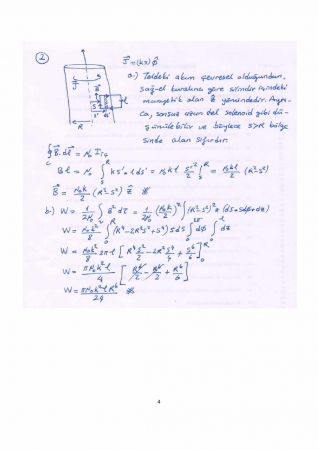 2
J⃗ = (ks) φ̂
a-) Teldeki akım çevresel olduğundan,
sağ-el kuralına göre silindir içindeki
manyetik alan B⃗ yönündedir. Ayrı-
ca, sonsuz uzun tel solenoid gibi dü-
şünülebilir ve böylece s>R bölge-
sinde alan sıfırdır.
∮ B⃗.dl⃗ = μ₀ I
c
Bl = μ₀ ∫ₛᴿ ks'.l ds' = μ₀kl s'²/2 |ₛᴿ = μ₀kl/2 (R²-s²)
B⃗ = μ₀k/2 (R²-s²) ẑ
b-) W = 1/2μ₀ ∫ B² dτ = 1/2μ₀ (μ₀k/2)² ∫(R²-s²)² (ds+sdφ+dz)
W = μ₀k²/8 ∫₀ᴿ (R⁴-2R²s²+s⁴) s ds ∫₀²ᵖⁱ dφ ∫₀ˡ dz
W = μ₀k²/8 2πl [R⁴s²/2 - 2R²s⁴/4 + s⁶/6]₀ᴿ
W = πμ₀k²l/4 [R⁶/2 - R⁶/2 + R⁶/6]
W = πμ₀k²lR⁶/24
4